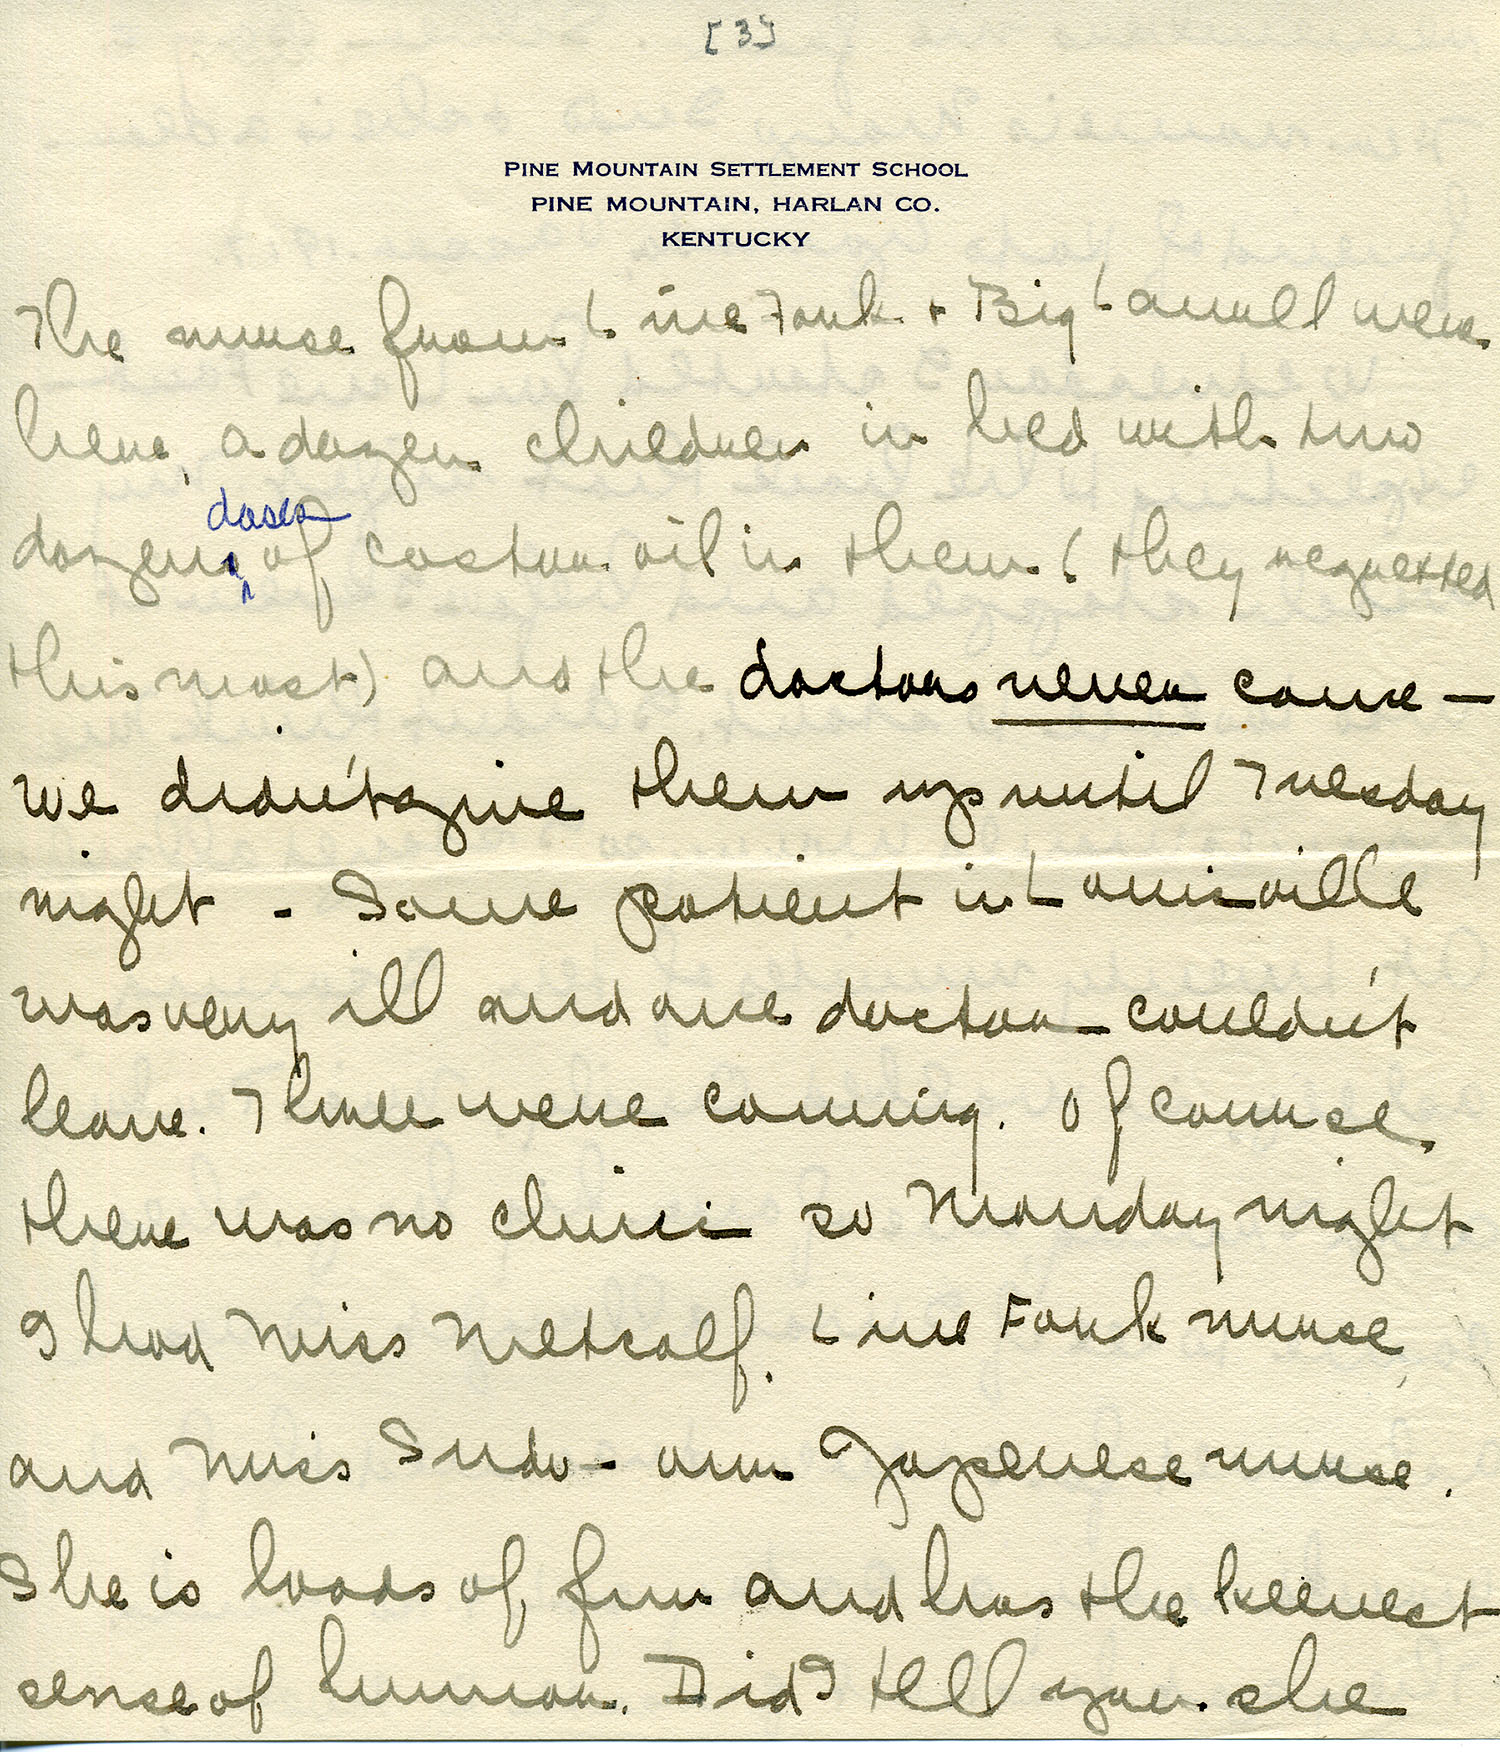 [3]
PINE MOUNTAIN SETTLEMENT SCHOOL
PINE MOUNTAIN, HARLAN CO.
KENTUCKY
The nurse from Line Fork + Big Laurell were
here, a dozen children in bed with two
doses
dozen of castor oil in them (they regretted
this most) and the doctors never came —
we didn't give them up until Tuesday
night - Some patient in Louisville
was very ill and one doctor couldn't
leave. Three were coming. Of course
there was no clinic so Monday night
I had Miss Metcalf, Line Fork nurse
and Miss Sudo - our Japenese nurse.
She is loads of fun and has the keenest
sense of humor. Did I tell you she